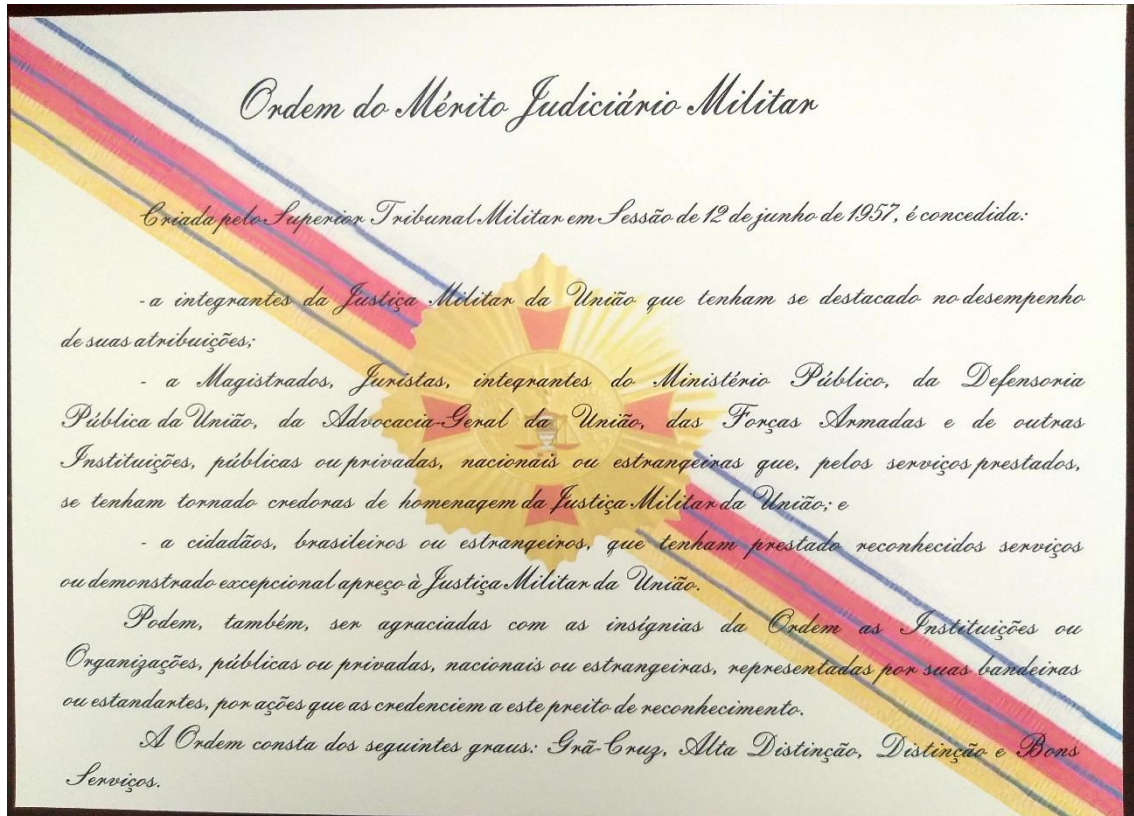 Ordem do Mérito Judiciário Militar
Criada pelo Superior Tribunal Militar em Sessão de 12 de junho de 1957, é concedida:
- a integrantes da Justiça Militar da União que tenham se destacado no desempenho
de suas atribuições;
- a Magistrados, Juristas, integrantes do Ministério Público, da Defensoria
Pública da União, da Advocacia-Geral da União, das Forças Armadas e de outras
Instituições, públicas ou privadas, nacionais ou estrangeiras que, pelos serviços prestados,
se tenham tornado credoras de homenagem da Justiça Militar da União; e
- a cidadãos, brasileiros ou estrangeiros, que tenham prestado reconhecidos serviços
ou demonstrado excepcional apreço à Justiça Militar da União.
Podem, também, ser agraciadas com as insígnias da Ordem as Instituições ou
Organizações, públicas ou privadas, nacionais ou estrangeiras, representadas por suas bandeiras
ou estandartes, por ações que as credenciem a este preito de reconhecimento.
A Ordem consta dos seguintes graus: Grã-Cruz, Alta Distinção, Distinção e Bons
Serviços.